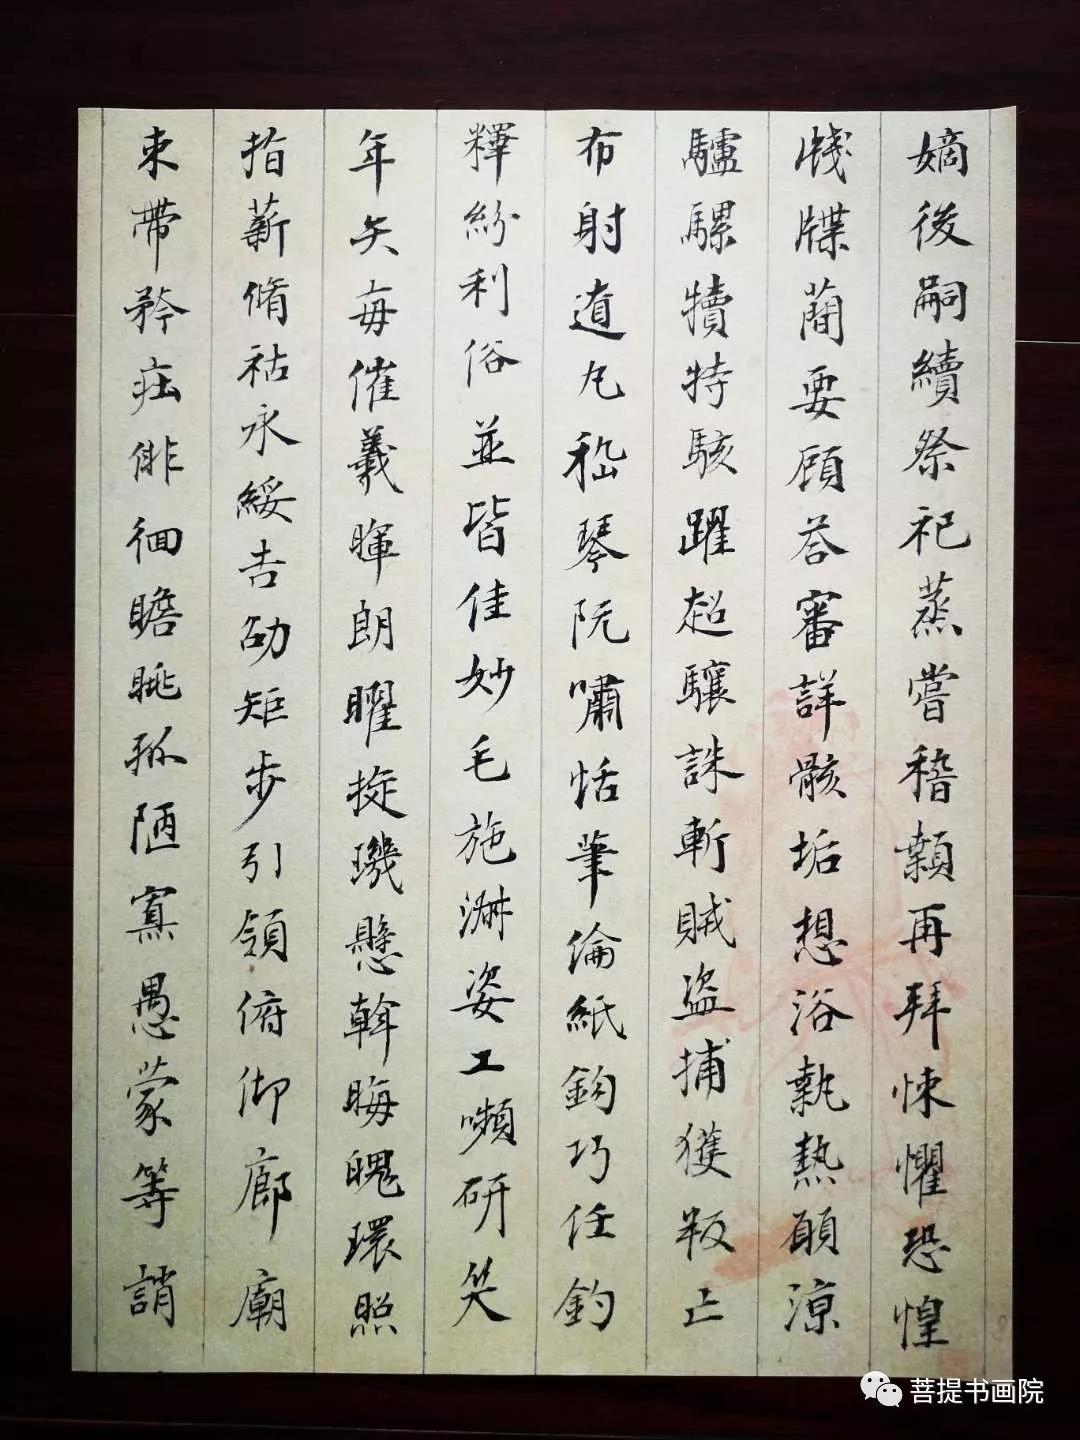 嫡後嗣續祭祀蒸嘗稽顙再拜悚懼恐惶
牋牒蕳要顧荅審詳骸垢想浴執熱願涼
驢騾犢特駭躍超驤誅斬賊盜捕獲叛亡
布射遼丸嵇琴阮嘯恬筆倫紙鈞巧任釣
釋紛利俗並皆佳妙毛施淑姿工嚬研笑
年矢每催羲暉朗曜琁璣懸斡晦魄環照
指薪脩祜永綏吉劭矩步引領俯仰廊廟
束帶矜莊俳佪瞻眺孤陋寡愚蒙等誚
菩提书画院